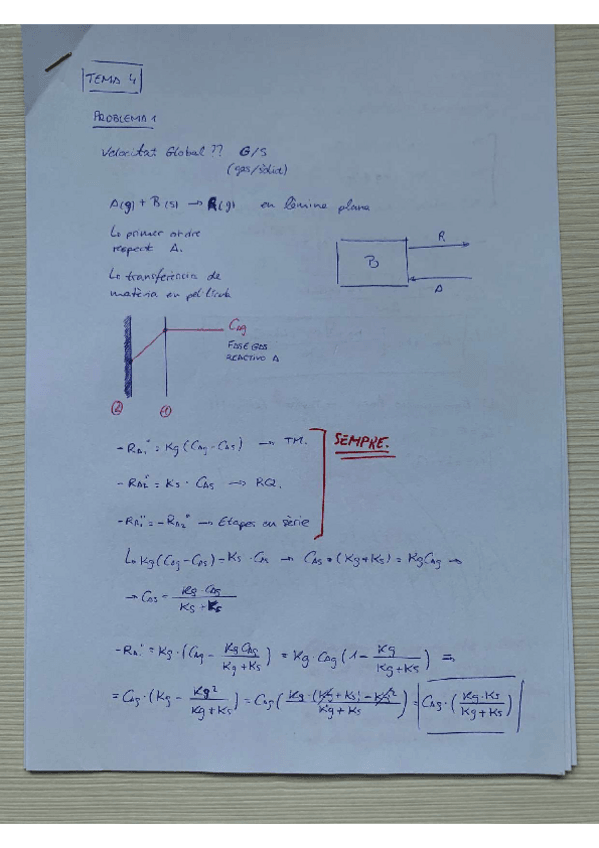 TEMA 4
PROBLEMA 1
Velocitat Global ?? G/S
(gas/sòlid)
A(g) + B(s) → R(g) en làmina plana
↳ primer ordre
respect A.
R
B
A
↳ transferència de
matèria en pel·lícula
CAg
FASE GAS
REACTIVO A
② ①
-RA1'' = Kg (CAg - CAs) → TM.
SEMPRE.
-RA2'' = Ks · CAs → RQ.
-RA1'' = -RA2'' → Etapes en sèrie
↳ Kg (CAg - CAs) = Ks · CAs → CAs · (Kg + Ks) = Kg CAg →
→ CAs = Kg · CAg / Ks + Ks
-RA'' = Kg · (CAg - Kg CAg / Kg + Ks) = Kg · CAg (1 - Kg / Kg + Ks) ⇒
= CAg · (Kg - Kg² / Kg + Ks) = CAg (Kg · (Kg + Ks) - Kg² / Kg + Ks) = CAg · (Kg · Ks / Kg + Ks)